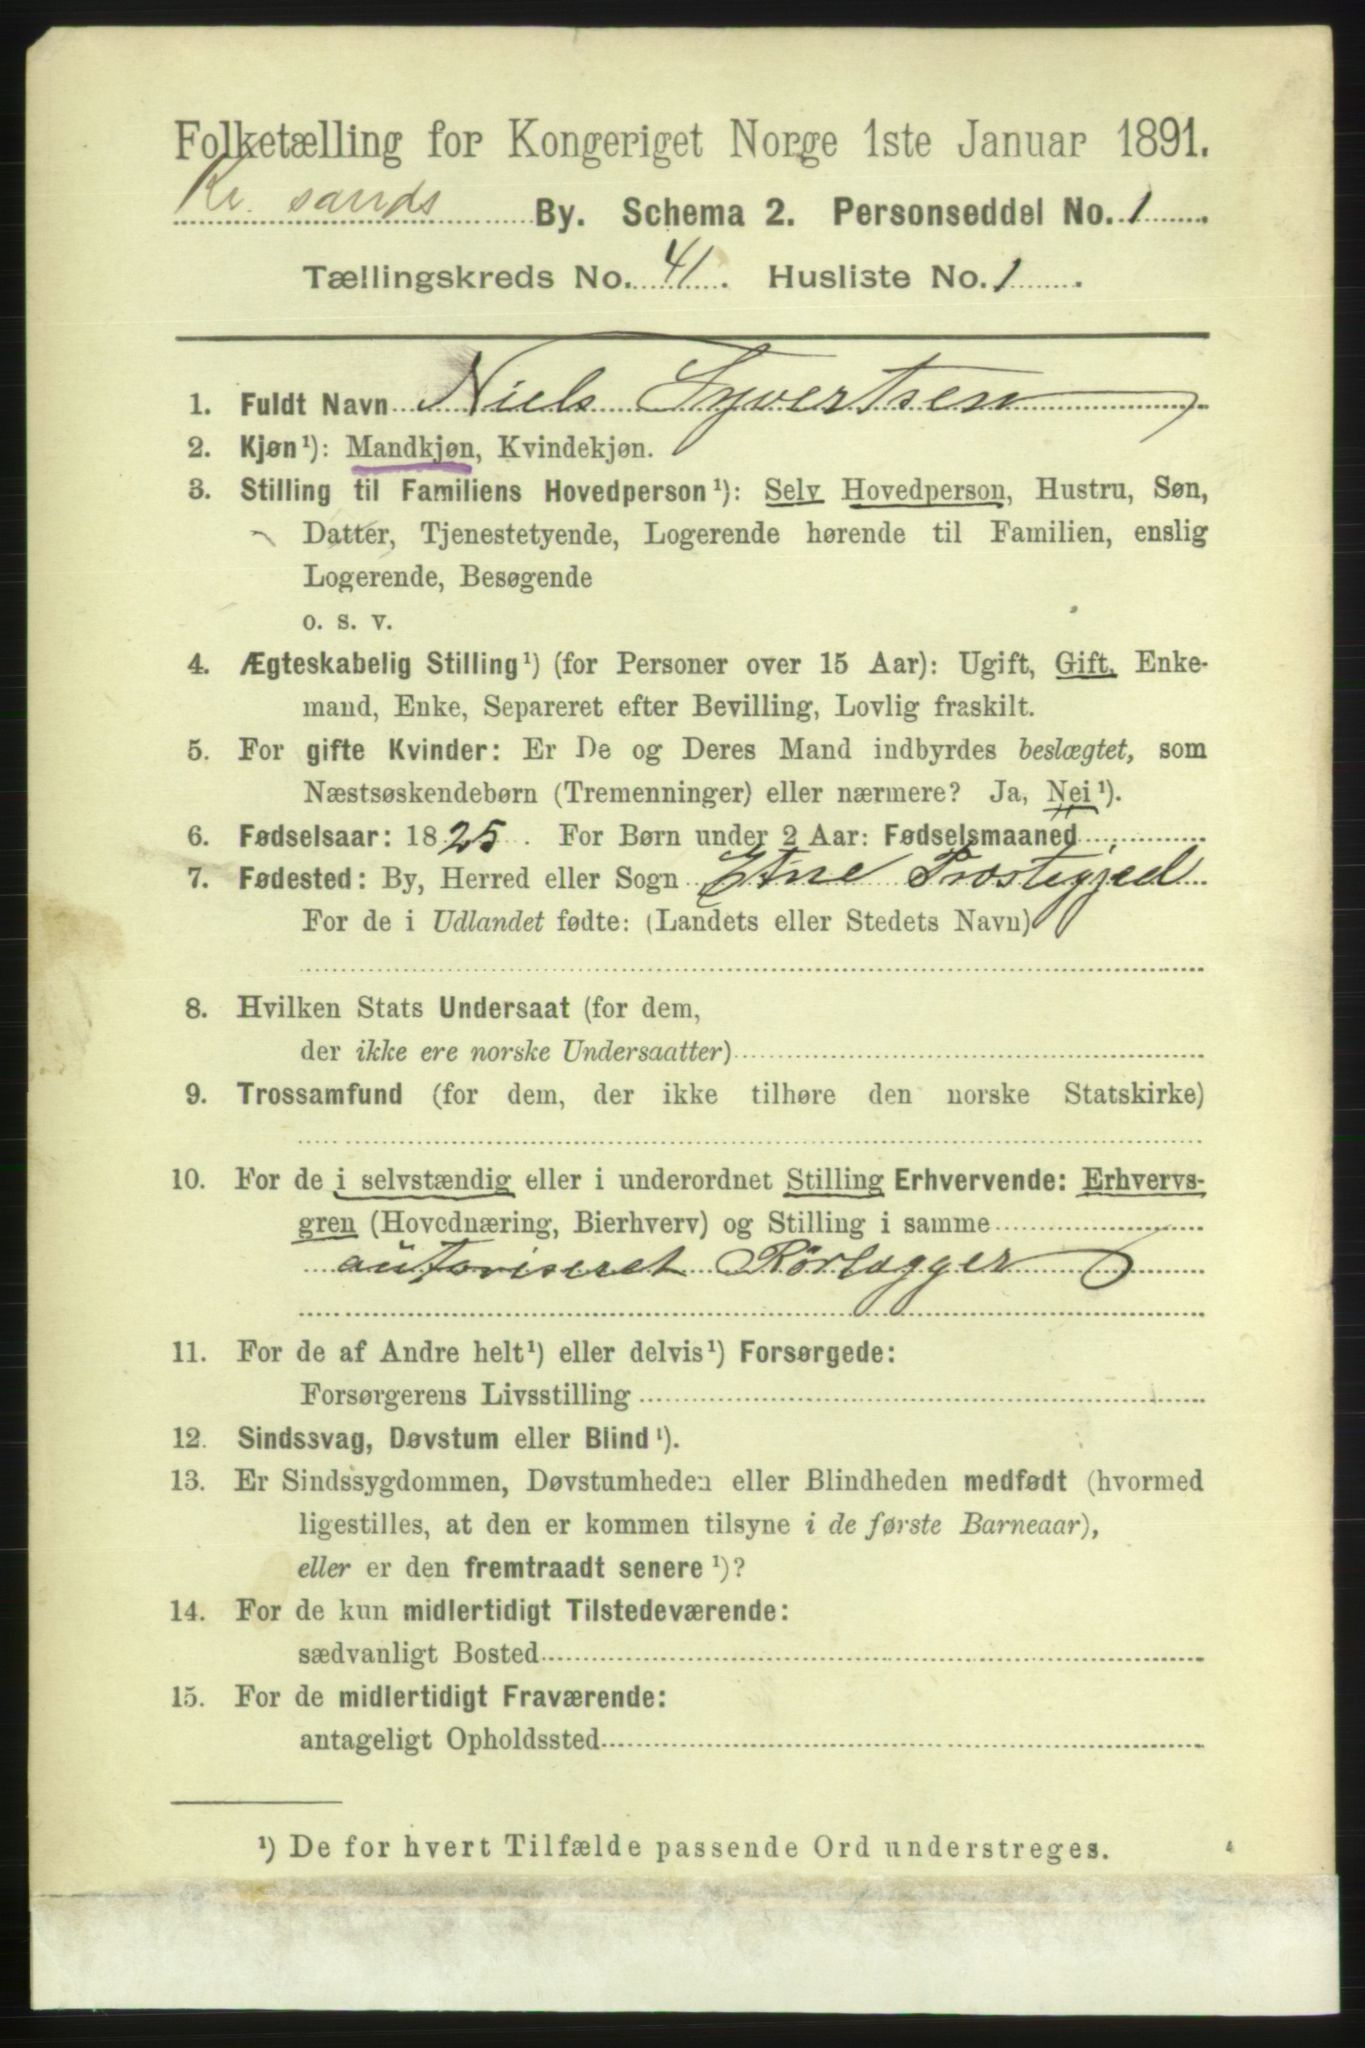 Folketælling for Kongeriget Norge 1ste Januar 1891.
Kr. sands By. Schema 2. Personseddel No. 1.
Tællingskreds No. 41. Husliste No. 1.
1. Fuldt Navn Niels Syvertsen
2. Kjøn¹): Mandkjøn, Kvindekjøn.
3. Stilling til Familiens Hovedperson¹): Selv Hovedperson, Hustru, Søn,
Datter, Tjenestetyende, Logerende hørende til Familien, enslig
Logerende, Besøgende
o. s. v.
4. Ægteskabelig Stilling¹) (for Personer over 15 Aar): Ugift, Gift, Enke-
mand, Enke, Separeret efter Bevilling, Lovlig fraskilt.
5. For gifte Kvinder: Er De og Deres Mand indbyrdes beslægtet, som
Næstsøskendebørn (Tremenninger) eller nærmere? Ja, Nei¹).
6. Fødselsaar: 1825. For Børn under 2 Aar: Fødselsmaaned
7. Fødested: By, Herred eller Sogn Etne Præstegjed
For de i Udlandet fødte: (Landets eller Stedets Navn)
8. Hvilken Stats Undersaat (for dem,
der ikke ere norske Undersaatter)
9. Trossamfund (for dem, der ikke tilhøre den norske Statskirke)
10. For de i selvstændig eller i underordnet Stilling Erhvervende: Erhvervs-
gren (Hovednæring, Bierhverv) og Stilling i samme
autoriseret Rörlægger
11. For de af Andre helt¹) eller delvis¹) Forsørgede:
Forsørgerens Livsstilling
12. Sindssvag, Døvstum eller Blind¹).
13. Er Sindssygdommen, Døvstumheden eller Blindheden medfødt (hvormed
ligestilles, at den er kommen tilsyne i de første Barneaar),
eller er den fremtraadt senere¹)?
14. For de kun midlertidigt Tilstedeværende:
sædvanligt Bosted
15. For de midlertidigt Fraværende:
antageligt Opholdssted
¹) De for hvert Tilfælde passende Ord understreges.